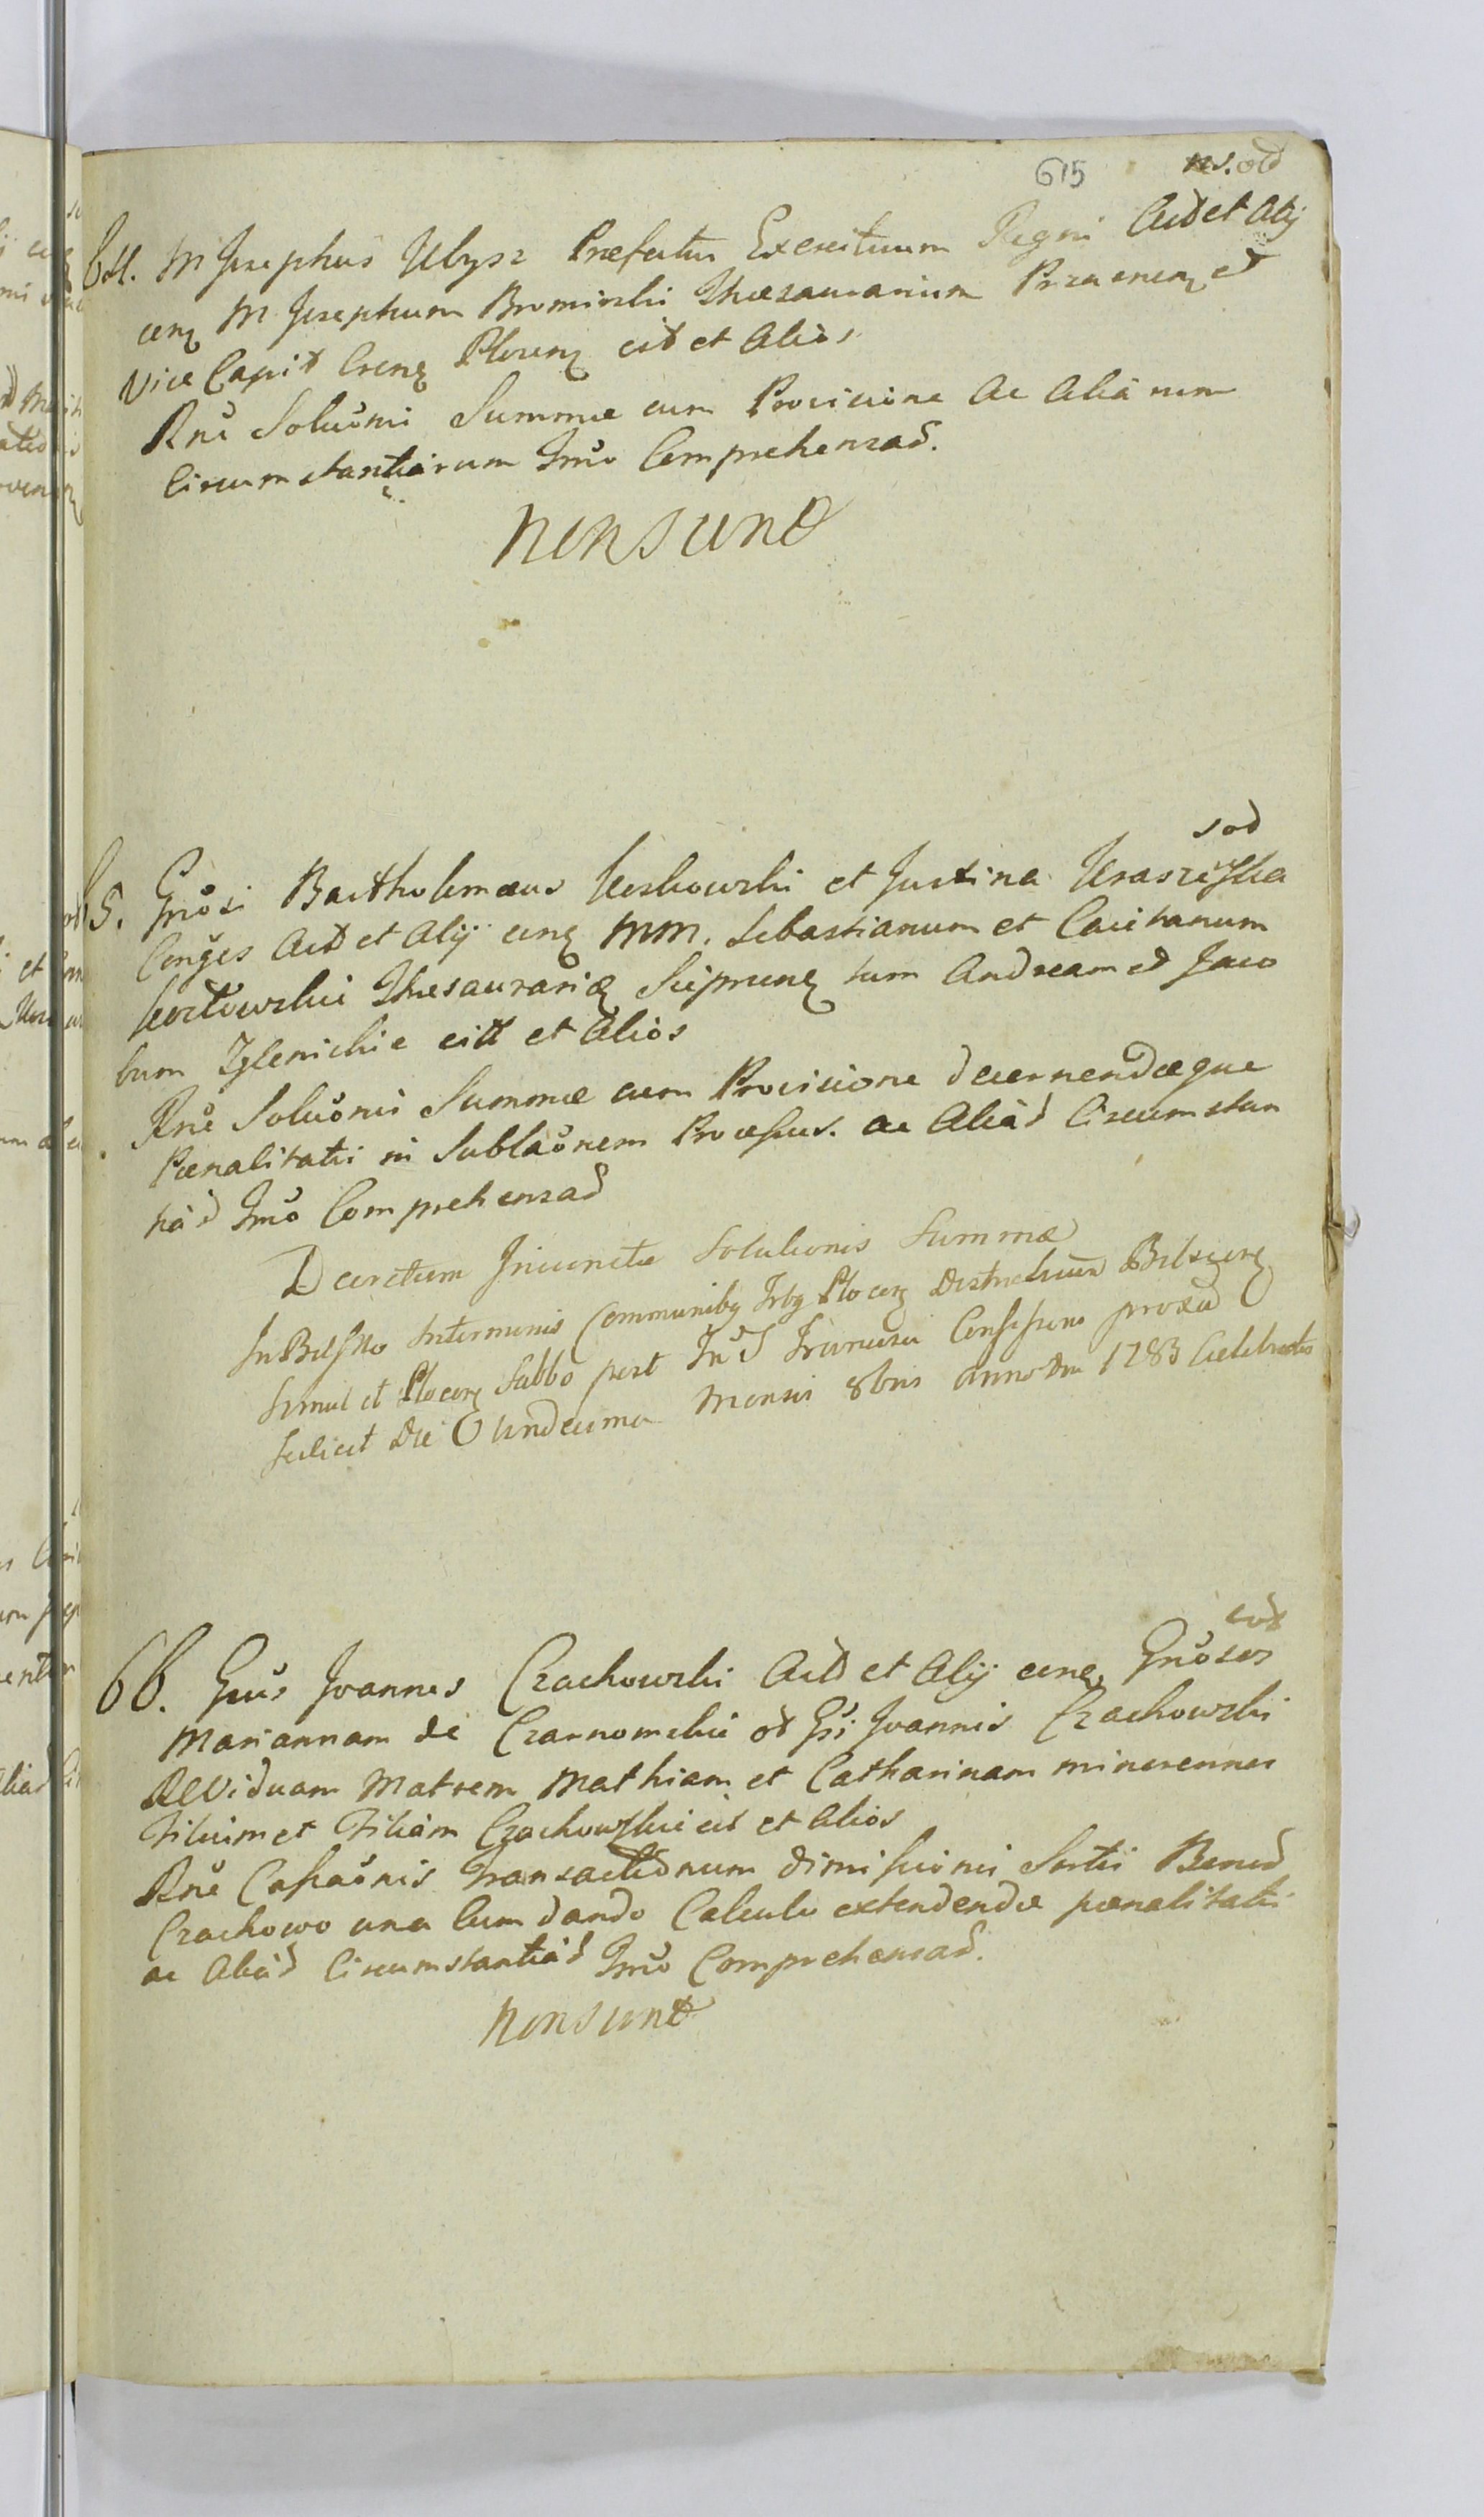 615 ns. od
64. M Josephus Ulysz Præfectus Exercituum Regni Actt et Alij
cum M Josephum Bromirski Thesaurarium Prasnen et
Vice Capit Crens Plocen citt et Alios
Rnẽ Soluõnis Summæ cum Provisione Ac Aliarum
Circumstantiarum Imõ Comprehensad.
Non sunt
sod
65. Gnõsi Bartholomæus et Justina
Conges Actt et Alij cum MM. Sebastianum et Caietanum
Thesaurarid Sieprcens tum Andream et Jaco
bum Zglenickie citt et Alios
Rnẽ Soluõnis Summæ cum Provisione decernendæque
Pænalitatis in Sublaõnem Processus. ac Aliad Circumstan
tiad Imõ Comprehensad
Decretum Iniunctæ Solutionis Summæ
In Bilsko In terminis Communibq Trbq Plocen Districtuum Bilscens
Simul et Plocen Sabbo post Fm S Francisci Confessoris proxa
scilicet Die Undecima Mensis 8bris Anno Dni 1783 Celebratis
eod
66. Gnũs Joannes Czachowski Actt et Alij cum Gnõsos
Mariannam de Czarnomskie od Gsi Joannis Czachowski
Reviduam Matrem Mathiam et Catharinam minorennes
Filium et Filiam Czachowskie cit et Alios
Rnẽ Cassaõnis Transactionum dimissionis Sortis Bonod
Czachowo una Cum dando Calculo extendendæ pænalitatis
ac Aliad Circumstantiad Imõ Comprehensad.
Non sunt